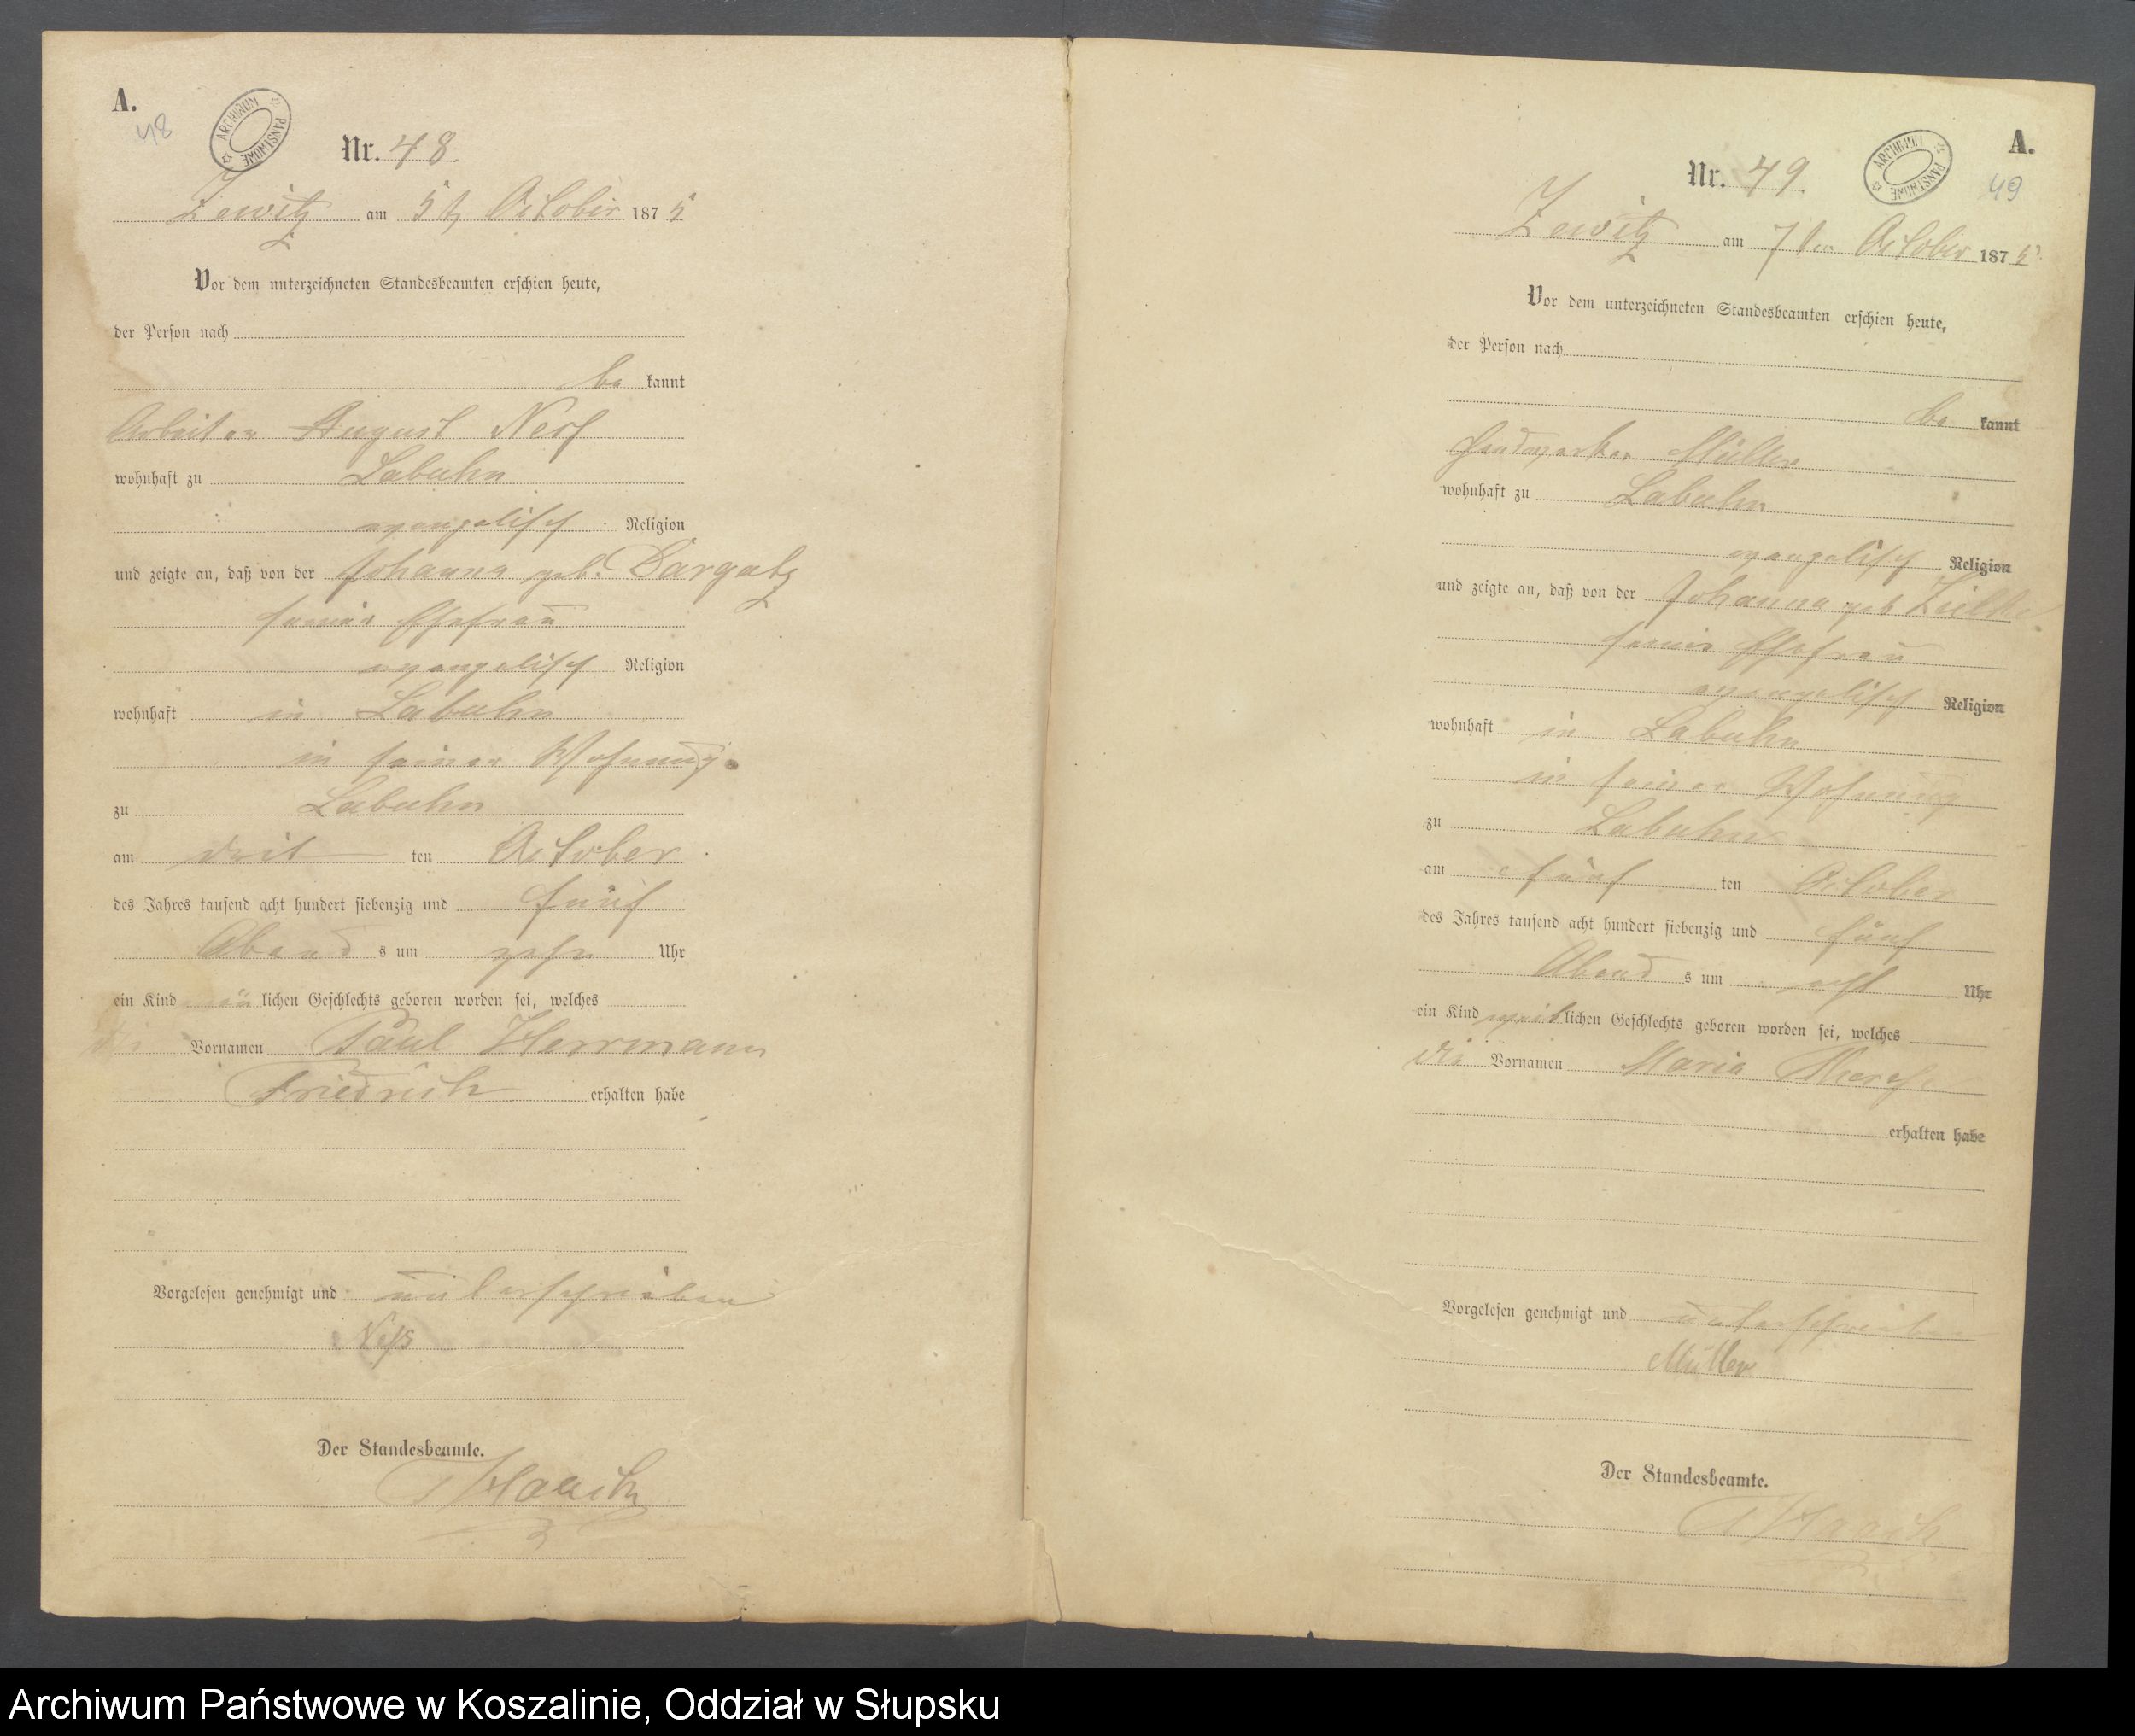 A.
48
ARCHIWUM PAŃSTWOWE
Nr. 48.
Zewitz am 5t October 1875
Vor dem unterzeichneten Standesbeamten erschien heute,
der Person nach
be kannt
Arbeiter August
wohnhaft zu Labuhn
evangelisch Religion
und zeigte an, daß von der Johanna geb. Dargatz
seiner Ehefrau
evangelisch Religion
wohnhaft in Labuhn
in seiner Wohnung
zu Labuhn
am drit ten October
des Jahres tausend acht hundert siebenzig und fünf
Abend s um zehn Uhr
ein Kind lichen Geschlechts geboren worden sei, welches
Vornamen Paul Herrmann
Friedrich erhalten habe
Vorgelesen genehmigt und unterschrieben
Der Standesbeamte.
A.
49
ARCHIWUM PAŃSTWOWE
Nr. 49.
Zewitz am 7ten October 1875
Vor dem unterzeichneten Standesbeamten erschien heute,
der Person nach
be kannt
Müller
wohnhaft zu Labuhn
evangelisch Religion
und zeigte an, daß von der Johanna geb
seiner Ehefrau
evangelisch Religion
wohnhaft in Labuhn
in seiner Wohnung
zu Labuhn
am fünf ten October
des Jahres tausend acht hundert siebenzig und fünf
Abend s um acht Uhr
ein Kind weiblichen Geschlechts geboren worden sei, welches
die Vornamen Maria Therese
erhalten habe
Vorgelesen genehmigt und unterschrieben
Müller
Der Standesbeamte.
Archiwum Państwowe w Koszalinie, Oddział w Słupsku